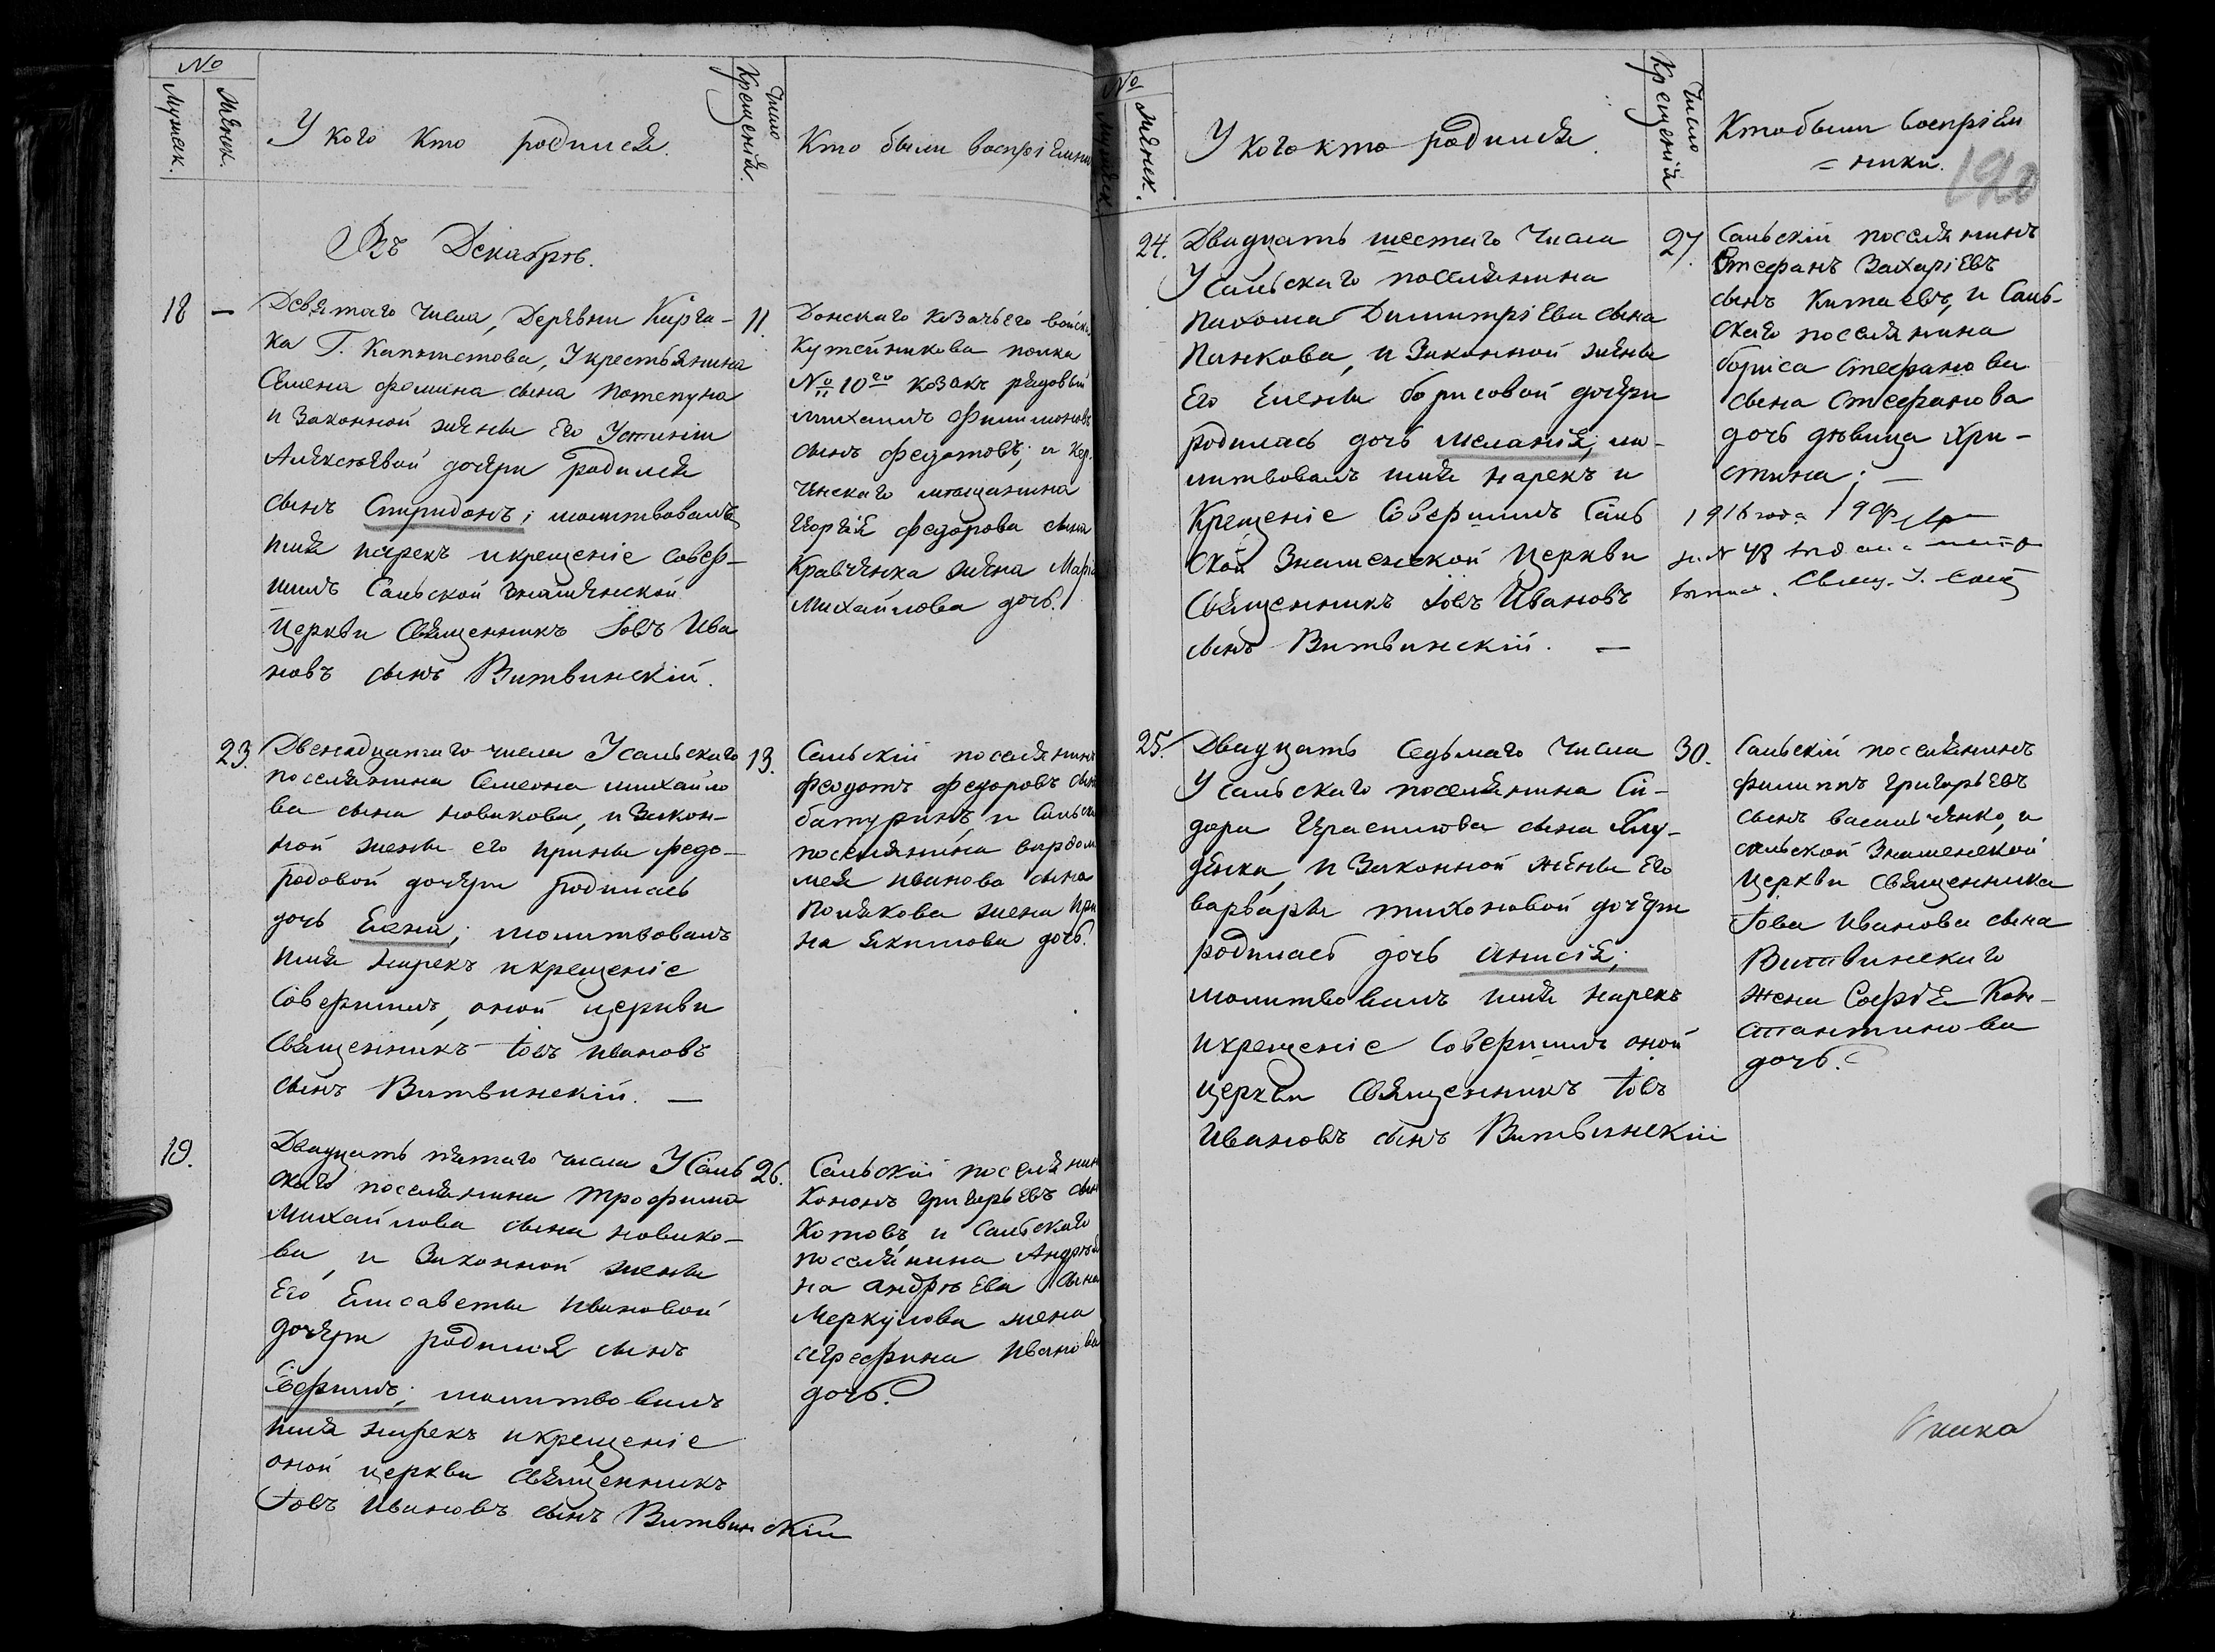 №
Мужек.
Женек.
У кого кто родился.
Число Крещенія.
Кто были воспріемни
Въ Декабрѣ.
18
—
Девятаго числа, Деревни Кирга-
ка Г. Капнистова, У крестьянина
Семена фомина сына Потепуна
и Законной жены Его Устиніи
Алексѣевой дочери родился
сынъ Спиридонъ; молитвовалъ
имя нарекъ и крещеніе совер-
шилъ Сальской знаменской
Церкви Священникъ Іовъ Ива
новъ сынъ Витвинскій.
11
Донскаго Казачьего войска
Кутейникова полка
№ 10го козакъ рядовый
михаилъ Филимоновъ
сынъ федотовъ; и Кер-
ченскаго мѣщанина
Георгія федорова сына
Кравченка жена Марія
Михайлова дочь.
23.
Двенадцатаго числа У Сальскаго
поселянина Семена михайло
ва сына новикова, и Закон-
ной жены его ирины федо-
родовой дочери родилась
дочь Елена; молитвовалъ
имя нарекъ и крещеніе
Совершилъ, оной церкви
Священникъ Іовъ Ивановъ
сынъ Витвинскій. —
13.
Сальскій поселянинъ
федотъ федоровъ сынъ
батуринъ, и Сальска
поселянина вардоло
мея иванова сына
Полякова жена Ири
на якимова дочь.
19.
Двадцать пятаго числа У Саль
скаго поселянина трофима
Михайлова сына новико-
ва, и Законной жены
Его Елисаветы Ивановой
дочери родился сынъ
молитвовалъ
имя нарекъ и крещеніе
оной церкви священникъ
Іовъ Ивановъ сынъ Витвинскій
26.
Сальскій поселянин
Кононъ григорьевъ сын
Котовъ, и Сальскаго
поселянина Андрея
на андрѣева сына
Меркулова жена
агрефина Иванова
дочь.
№
Мужек.
Женек.
У кого кто родился.
Число Крещенія
Кто были воспріем
= ники.
190
24.
Двадцать шестаго числа
У Сальскаго поселянина
Пахома Димитріева сына
Панкова, и Законной жены
Его Елены борисовой дочери
родилась дочь меланія; мо-
литвовалъ имя нарекъ и
Крещеніе Совершилъ Саль
ской Знаменской Церкви
Священникъ Іовъ Ивановъ
сынъ Витвинскій. —
27.
Сальскій поселянинъ
Стефанъ Захаріевъ
сынъ Китаевъ, и Саль-
скаго поселянина
бориса Стефанова
сына Стефанова
дочь дѣвица Хри-
стина; —
1916 года 19
за № 48 выдана
Свящ. І.
25.
Двадцать Седьмаго числа
У Сальскаго поселянина Си-
дора Герасимова сына
денка, и Законной жены Его
варвары тихоновой дочери
родилась дочь анисія;
молитвовалъ имя нарекъ
и крещеніе Совершилъ оной
церкви Священникъ Іовъ
Ивановъ сынъ Витвинскій
30.
Сальскій поселянинъ
филиппъ григорьевъ
сынъ васильченко, и
сальской Знаменской
Церкви Священника
Іова Иванова сына
Витвинскаго
жена Софья Кон-
стантинова
дочь.